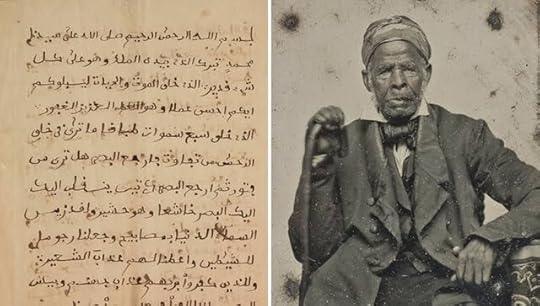 بسم الله الرحمن الرحيم صلى الله على سيدنا
محمد تبرك الذي بيده الملك وهو على كل
شيء قدير الذي خلق الموت والحياة ليبلوكم
ايكم احسن عملا وهو العزيز الغفور
الذي خلق سبع سموات طباقا ما ترى في خلق
الرحمن من تفاوت فارجع البصر هل ترى من
ثم ارجع البصر ينقلب اليك
اليك البصر خاشعا وهو حشير ولقد
السماء الدنيا بمصابيح وجعلنا
للشيطين لهم عذاب السعير
وللذين كفروا بربهم عذاب جهنم وبيس